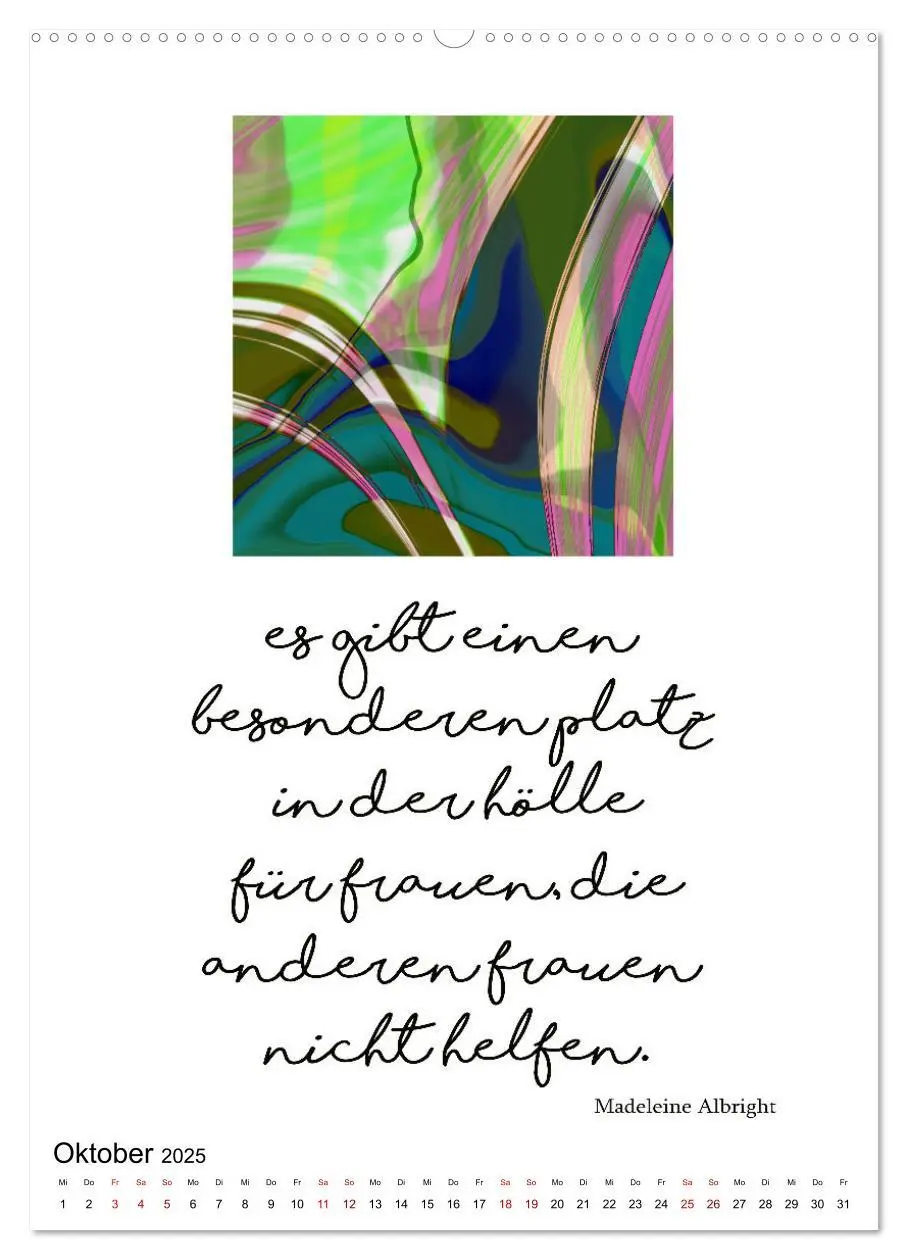 es gibt einen
besonderen platz
in der hölle
für frauen, die
anderen frauen
nicht helfen.
Madeleine Albright
Oktober 2025
Mi Do Fr Sa So Mo Di Mi Do Fr Sa So Mo Di Mi Do Fr Sa So Mo Di Mi Do Fr Sa So Mo Di Mi Do Fr
1 2 3 4 5 6 7 8 9 10 11 12 13 14 15 16 17 18 19 20 21 22 23 24 25 26 27 28 29 30 31